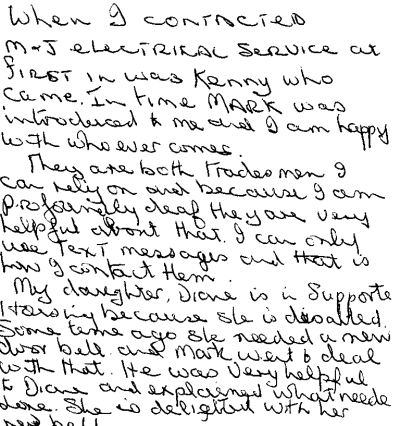 When I contacted
M & J electrikal Service at
first it was Kenny who
came. In time Mark was
introduced to me and I am happy
with who ever comes.
They are both tradesmen I
can rely on and because I am
profoundly deaf they are very
helpful about that. I can only
use text messages and that is
how I contact them.
My daughter, Diane is in Supporte
Housing because she is disabled.
Some time ago she needed a new
door bell and Mark went to deal
with that. He was very helpful
to Diane and explained what neede
done. She is delighted with her
new bell